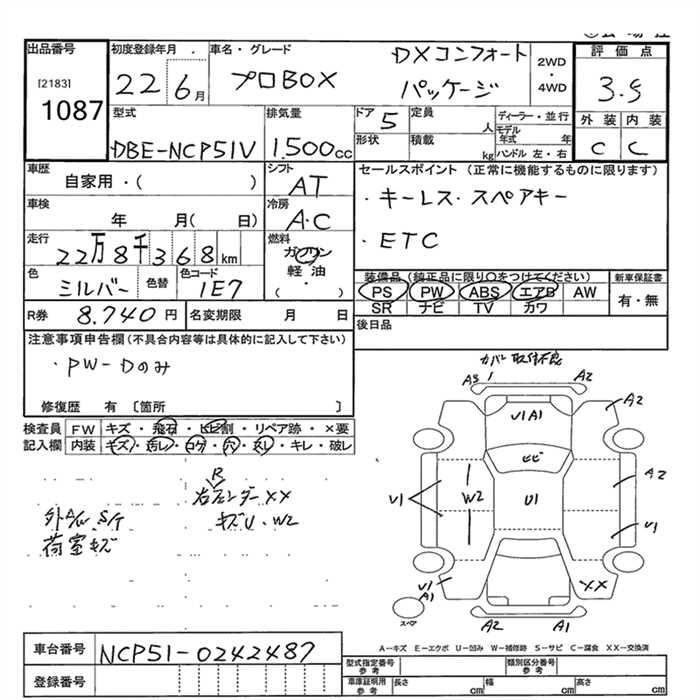 出品番号 初度登録年月 . 車名・グレード 評価点
[2183] 1087 22 6月 プロBOX DXコンフォート パッケージ 2WD ・ 4WD 3.5
型式 排気量 ドア 定員 ディーラー・並行 外装 内装
DBE-NCP51V 1.500cc 5 人 モデル年式 年 C C
形状 積載 kg ハンドル 左・右
車歴 自家用・( ) シフト AT セールスポイント (正常に機能するものに限ります)
車検 年 月( 日) 冷房 A・C ・キーレス・スペアキー
走行 22万8千368km 燃料 ガソリン 軽油・( ) ・ETC
色 シルバー 色替 色コード 1E7 装備品(純正品に限り○をつけてください) 新車保証書
PS PW ABS エアB AW 有・無
SR ナビ TV カワ
R券 8.740円 名変期限 月 日 後日品
注意事項申告欄(不具合内容等は具体的に記入して下さい)
・PW-Dのみ
修復歴 有 〔箇所 〕
検査員 FW キズ・飛石・ヒビ割・リペア跡・×要
記入欄 内装 キズ・汚レ・コゲ・穴・ヌレ・キレ・破レ
カバー取付不良
A3 1 A2
U1A1 A2
ヒビ
U1 W2 U1 A2
U1
U1 A1 XX
スペア
A2 A1
R
XX
キズU・W2
外A/W S/T
荷室キズ
A-キズ E-エクボ U-凹み W-補修跡 S-サビ C-腐食 XX-交換済
車台番号 NCP51-0242487 型式指定番号 参考 類別区分番号 参考
登録番号 車庫証明用 参考 長さ cm 幅 cm 高さ cm